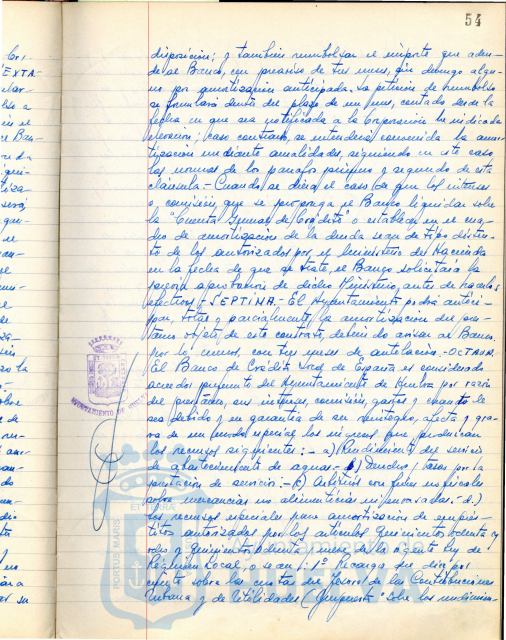 54
disposición; y también reembolsar el importe que aden-
de al Banco, con preaviso de tres meses, sin devengo algu-
no por amortización anticipada. La petición de reembolso
se formulará dentro del plazo de un mes, contado desde la
fecha en que sea notificada a la Corporación la indicada
elevación; caso contrario, se entenderá convenida la amor-
tización mediante anualidades, siguiendo en este caso
las normas de los párrafos primero y segundo de esta
cláusula.- Cuando se diera el caso de que los intereses
o comisión que se proponga el Banco liquidar sobre
la "Cuenta General de Crédito" o establecer en el cua-
dro de amortización de la deuda sean de tipo distin-
to de los autorizados por el Ministerio de Hacienda
en la fecha de que se trate, el Banco solicitará la
previa aprobación de dicho Ministerio, antes de hacerlos
efectivos.- SEPTIMA.- El Ayuntamiento podrá antici-
par, total y parcialmente, la amortización del prés-
tamo objeto de este contrato, debiendo avisar al Banco,
por lo menos, con tres meses de antelación.- OCTAVA.
El Banco de Crédito Local de España es considerado
acreedor preferente del Ayuntamiento de Huelva por razón
del préstamo, sus intereses, comisión, gastos y cuanto le
sea debido y en garantía de su reintegro, afecta y gra-
va de un modo especial los ingresos que produzcan
los recursos siguientes: - a) Rendimiento del servicio
de abastecimiento de aguas.- b) Derechos y tasas por la
prestación de servicio.- c) Arbitrios con fines no fiscales
sobre mercancías no alimenticias ni
los recursos especiales para amortización de emprés-
titos autorizados por los artículos quinientos ochenta y
dos y quinientos ochenta y nueve de la vigente Ley de
Régimen Local, o sean: 1º Recargo del diez por
ciento sobre las cuotas del Tesoro de las Contribuciones
Urbana y de Utilidades (Impuesto sobre los rendimien-
AYUNTAMIENTO DE HUELVA
PORTUS MARIS
ET TERRAE
HUELVA